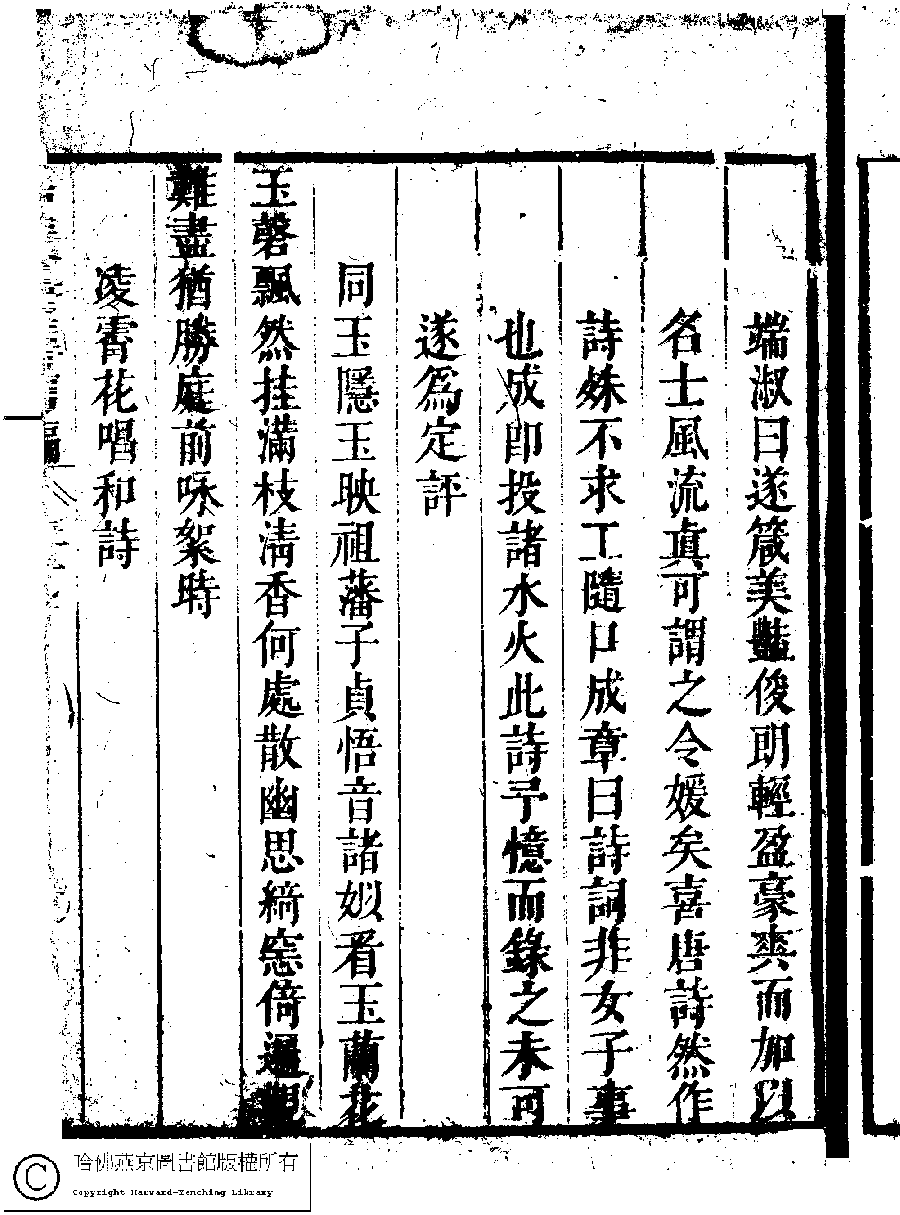 端淑曰遂箴美豔俊朗輕盈豪爽而加以
名士風流真可謂之令媛矣喜唐詩然作
詩姝不求工隨口成章曰詩詞非女子事
也成卽投諸水火此詩予憶而錄之未可
遂爲定評
同玉隱玉映祖藩子貞悟音諸姒看玉蘭花
玉磬飄然挂滿枝淸香何處散幽思綺窓倚遍觀
難盡猶勝庭前咏絮時
凌霄花唱和詩
哈佛燕京圖書館版權所有
Copyright Harvard-Yenching Library